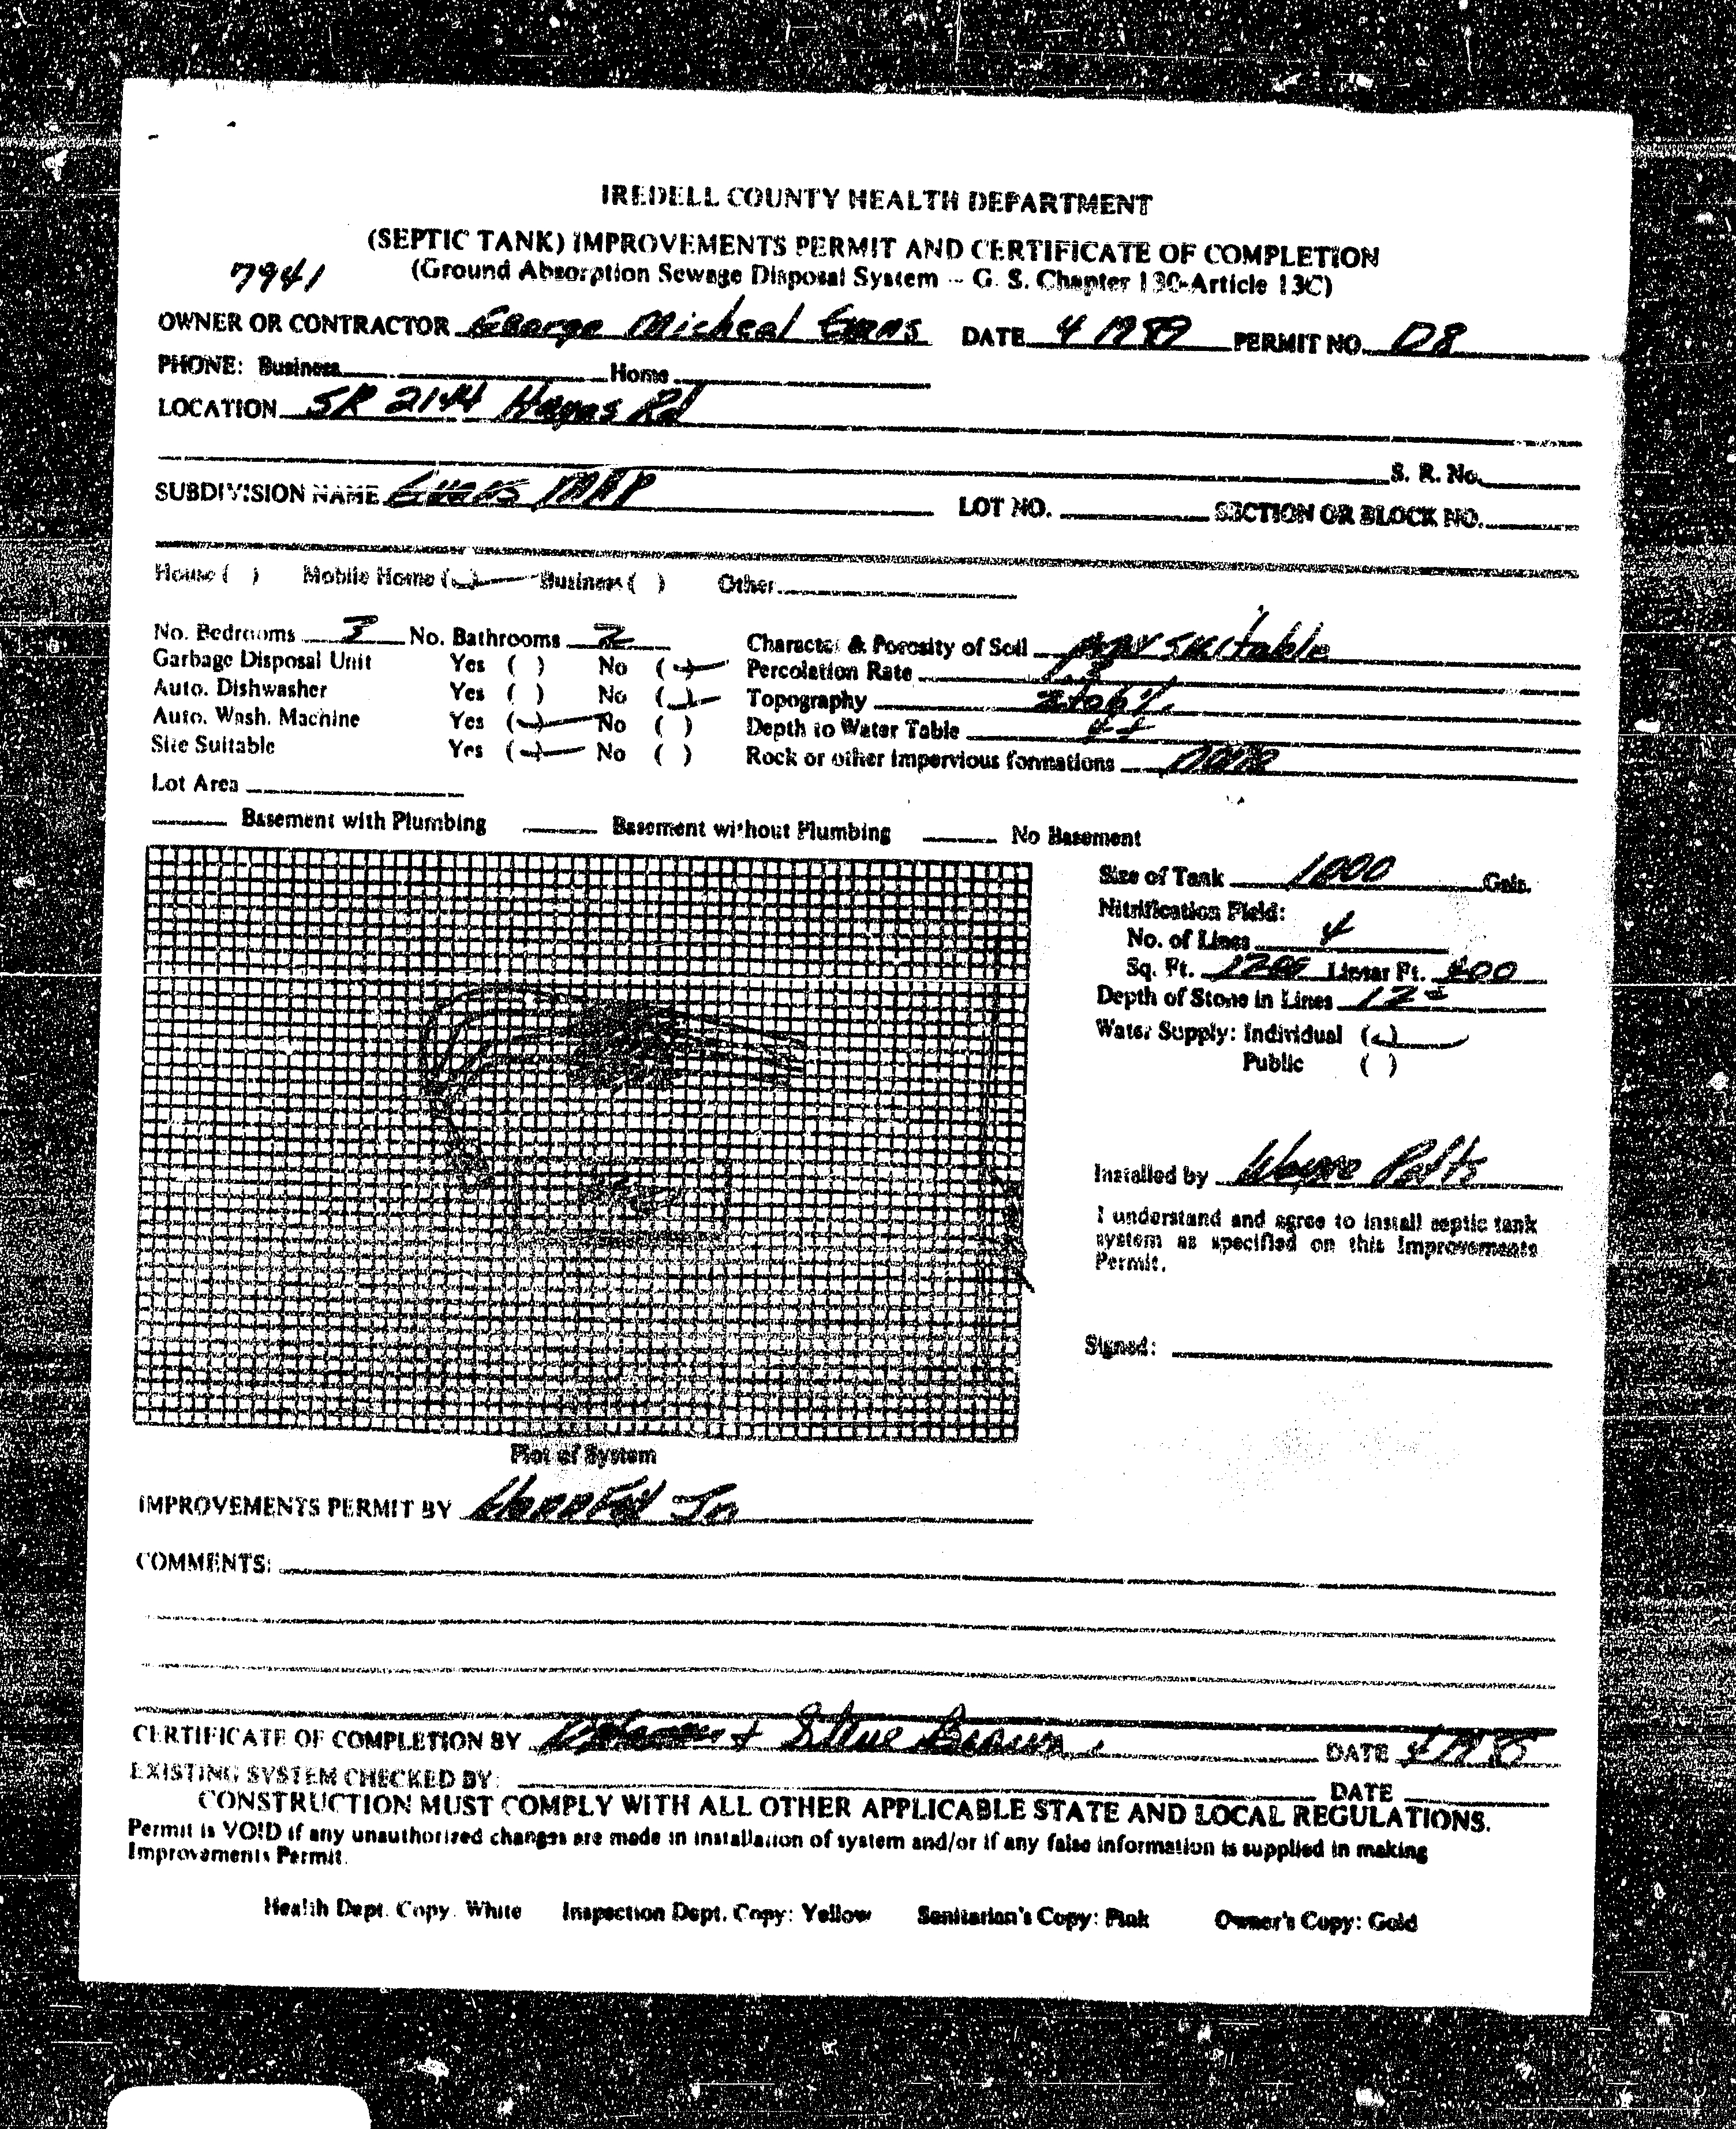 IREDELL COUNTY HEALTH DEPARTMENT
(SEPTIC TANK) IMPROVEMENTS PERMIT AND CERTIFICATE OF COMPLETION
7941 (Ground Absorption Sewage Disposal System -- G. S. Chapter 130-Article 13C)
OWNER OR CONTRACTOR George Micheal Evans DATE PERMIT NO. D8
PHONE: Business Home
LOCATION SR 2144 Hayes Rd
S. R. No.
SUBDIVISION NAME Evans MHP LOT NO. SECTION OR BLOCK NO.
House ( ) Mobile Home ( ) Business ( ) Other
No. Bedrooms 3 No. Bathrooms 2 Character & Porosity of Soil suitable
Garbage Disposal Unit Yes ( ) No ( ) Percolation Rate
Auto. Dishwasher Yes ( ) No ( ) Topography 2 to 6%
Auto. Wash. Machine Yes ( ) No ( ) Depth to Water Table
Site Suitable Yes ( ) No ( ) Rock or other impervious formations none
Lot Area
Basement with Plumbing Basement without Plumbing No Basement
Size of Tank 1000 Gals.
Nitrification Field:
No. of Lines 4
Sq. Ft. 1200 Linear Ft. 400
Depth of Stone in Lines 12"
Water Supply: Individual ( )
Public ( )
Installed by Wayne Potts
I understand and agree to install septic tank
system as specified on this Improvements
Permit.
Signed:
Plot of System
IMPROVEMENTS PERMIT BY
COMMENTS:
CERTIFICATE OF COMPLETION BY Steve Brown DATE
EXISTING SYSTEM CHECKED BY: DATE
CONSTRUCTION MUST COMPLY WITH ALL OTHER APPLICABLE STATE AND LOCAL REGULATIONS.
Permit is VOID if any unauthorized changes are made in installation of system and/or if any false information is supplied in making
Improvements Permit.
Health Dept. Copy. White Inspection Dept. Copy: Yellow Sanitarian's Copy: Pink Owner's Copy: Gold